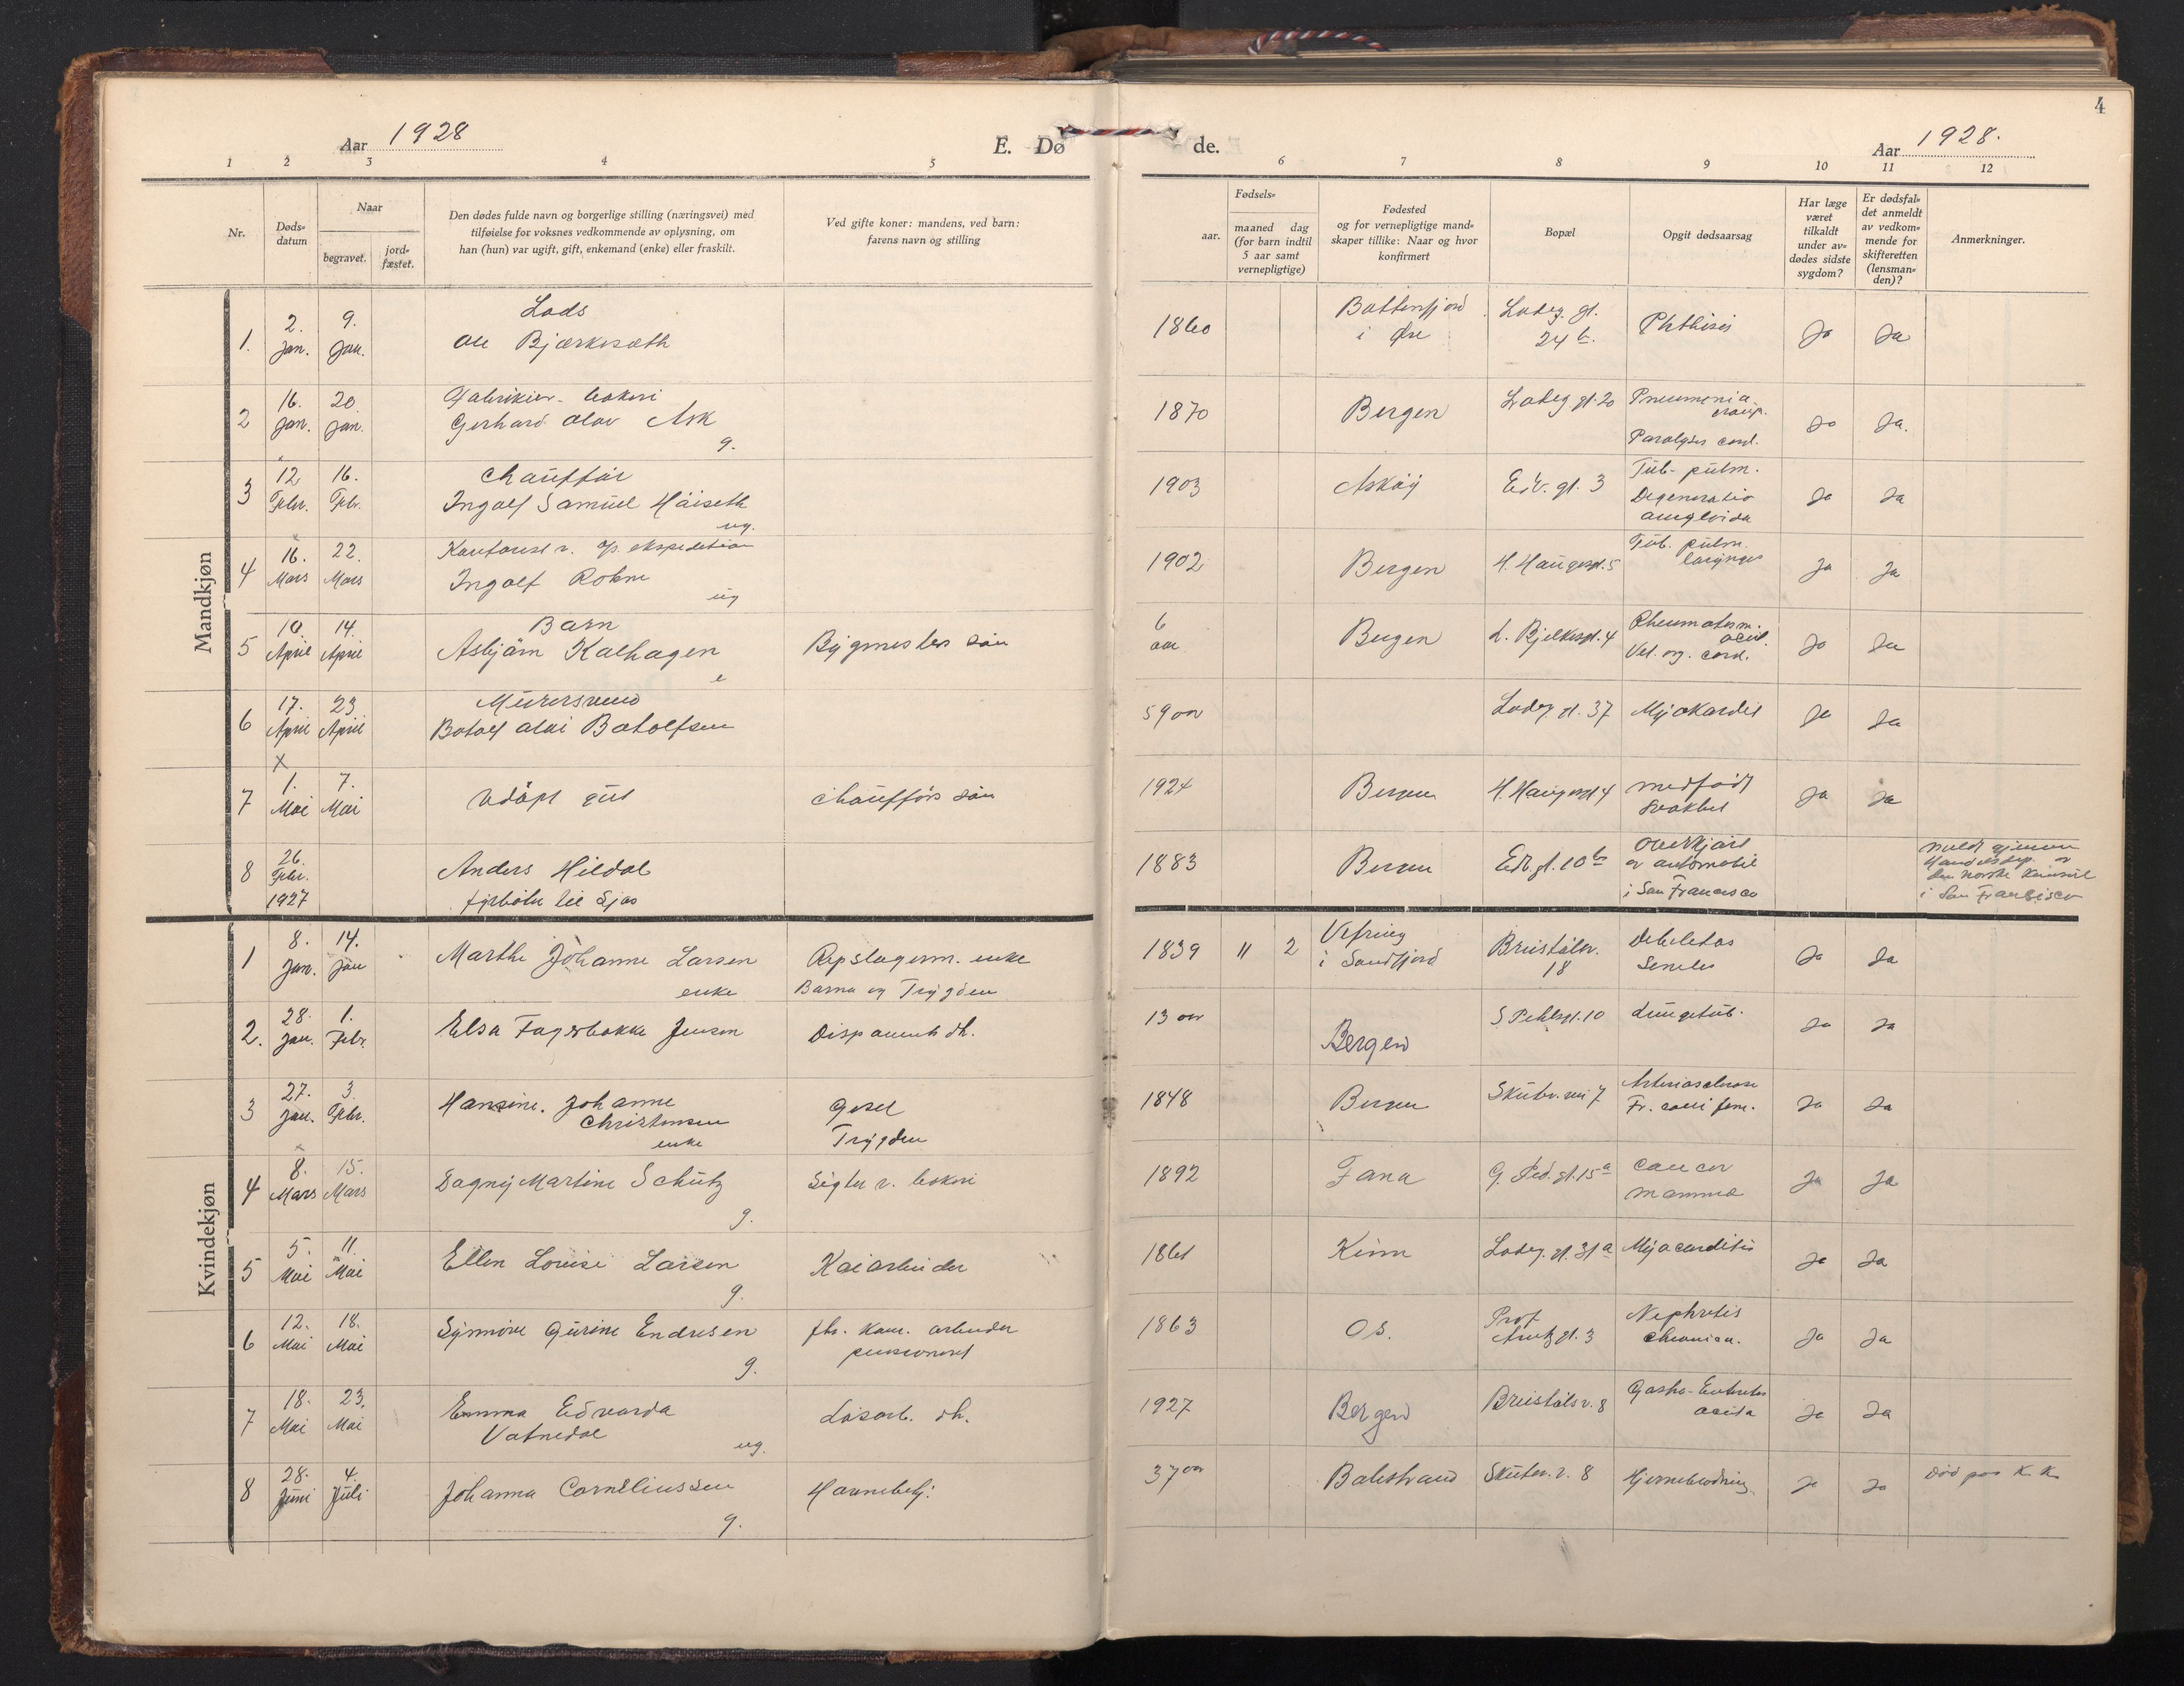 4
Aar 1928
E. Dø
de.
Aar 1928.
1 2 3 4 5 6 7 8 9 10 11 12
Nr.
Døds-
datum
Naar
begravet.
jord-
fæstet.
Den dødes fulde navn og borgerlige stilling (næringsvei) med
tilføielse for voksnes vedkommende av oplysning, om
han (hun) var ugift, gift, enkemand (enke) eller fraskilt.
Ved gifte koner: mandens, ved barn:
farens navn og stilling
Fødsels-
aar.
maaned dag
(for barn indtil
5 aar samt
vernepligtige)
Fødested
og for vernepligtige mand-
skaper tillike: Naar og hvor
konfirmert
Bopæl
Opgit dødsaarsag
Har læge
været
tilkaldt
under av-
dødes sidste
sygdom?
Er dødsfal-
det anmeldt
av vedkom-
mende for
skifteretten
(lensman-
den)?
Anmerkninger.
Mandkjøn
1. 2. Jan. 9. Jan.
Lods
Ole Bjærkesæth
1860
Battenfjord
i Øre
Ladeg. gt.
24 b.
Phthisis
Ja Ja
2 16. Jan. 20. Jan.
Gerhard Olav Ask
g.
1870 Bergen Ladeg gt. 20
Pneumonia
croup.
Paralysis cord.
Ja Ja.
3 12 Febr. 16. Febr.
Chauffør
Ingolf Samuel Høiseth
ug.
1903 Askøy Edv. gt. 3
Tub. pulm.
Degeneratio
Ja Ja
4 16. Mars 22. Mars
Ingolf Robne
ug
1902 Bergen H. Haugesgt. 5
Tub. pulm.
laryngis
Ja Ja
5 10. April 14. April
Barn
Asbjørn Kalhagen
Bygmesters søn
6
aar
Bergen L. Bjelkesgt. 4
Vit. org. cord.
Ja Ja
6 17. April 23 April
Murersvend
Botolf Olai Botolfsen
59 aar Ladeg gt. 37 Myokardit Ja Ja
x
7 1. Mai 7. Mai
Udøpt gut
chaufførs søn
1924 Bergen H. Haugesgt 4
medfødt
svakhet
Ja Ja
8 26. Febr. 1927
Anders Hildal
fyrbøter til Sjøs
1883 Bergen Edv. gt. 10 b
overkjørt
av automobil
i San Francisco
meldt gjennem
Handelsdep. av
den norske konsul
i San Francisco
Kvindekjøn
1 8. Jan. 14. Jan
Marthe Johanne Larsen
enke
Repslagerm. enke
Barna og Trygden
1839 11 2
Vefring
i Sandfjord
Breistølsv.
18
Debilitas
Senilis
Ja Ja
2. 28. Jan. 1. Febr.
Elsa Fagerbakke Jensen
Disponents dt.
13 aar
Bergen
S Pihlsgt. 10 Lungetub. Ja Ja
3 27. Jan. 3. Febr.
Hansine Johanne
Christensen
enke
Gesel
Trygden
1848 Bergen Skutev. vei 7
Arteriosclerose
Fr. colli fem.
Ja Ja
4 8. Mars 15. Mars
Dagny Martine Schütz
g.
Sigter v. bakeri
1892 Fana G. Ped. gt. 15 a
Cancer
mamma
Ja Ja
5 5. Mai 11. Mai
Ellen Louise Larsen
g.
Kaiarbeider
1861 Kinn Ladeg. gt. 31 a Myocarditis Ja Ja
6 12. Mai 18. Mai
Synnøve Gurine Endresen
g.
fhv. Kom. arbeider
pensionert
1863 Os.
Prof
Arntz gt. 3
Nephritis
chronica.
Ja Ja
7 18. Mai 23. Mai
Emma Edvarda
Vatnedal
ug.
Løsarb. dt.
1927 Bergen Breistølsv. 8
Gastro-Enteritis
acuta
Ja Ja
8 28. Juni 4. Juli
Johanna Corneliussen
g.
Havnebetj.
37 aar Balestrand Skutev. v. 8 Hjerneblødning Ja Ja Død paa K. K.